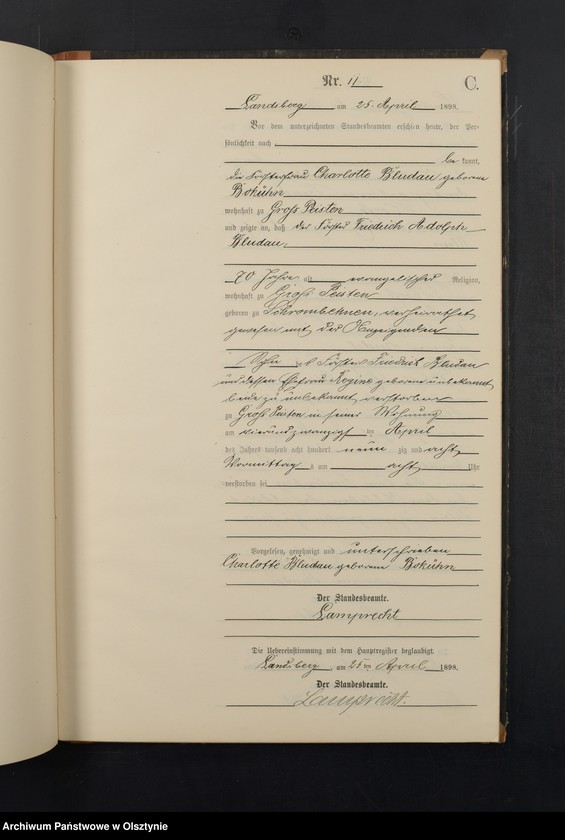 Nr. 11
C.
Landsberg am 25. April 1898.
Vor dem unterzeichneten Standesbeamten erschien heute, der Per-
sönlichkeit nach
be kannt,
die Försterfrau Charlotte Bludau geborene
Bokühn
wohnhaft zu Groß Peisten
und zeigte an, daß der Förster Friedrich Adolph
Bludau,
70 Jahre alt evangelischer Religion,
wohnhaft zu Groß Peisten
geboren zu Schrombehnen, verheirathet
gewesen mit der Anzeigenden
Sohn des Förster Friedrich Bludau
und dessen Ehefrau Regine geborene unbekannt
beide zu unbekannt verstorben
zu Groß Peisten in seiner Wohnung
am vierundzwanzigsten April
des Jahres tausend acht hundert neun zig und acht
Vormittag s um acht Uhr
verstorben sei
Vorgelesen, genehmigt und unterschrieben
Charlotte Bludau geborene Bokühn
Der Standesbeamte.
Lamprecht
Die Uebereinstimmung mit dem Hauptregister beglaubigt.
Landsberg am 25 ten April 1898.
Der Standesbeamte.
Lamprecht.
Archiwum Państwowe w Olsztynie